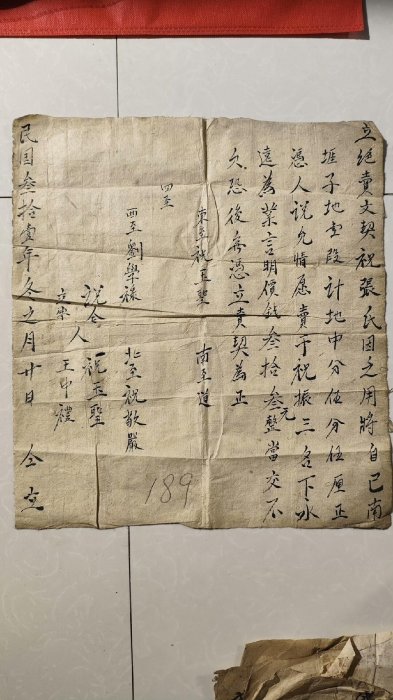 立絕賣文契祝張氏因乏用將自己南
堐子地壹段計地中分伍分伍厘正
憑人說允情愿賣于祝振三名下永
遠為業言明價敘叁拾叁元整當交不
欠恐後無憑立賣契為正
四至
東至祝玉業
南至道
西至劉學祿
北至祝敬嚴
說合人
祝玉聖
王中禮
民国叁拾壹年冬之月廿日 仝立
189